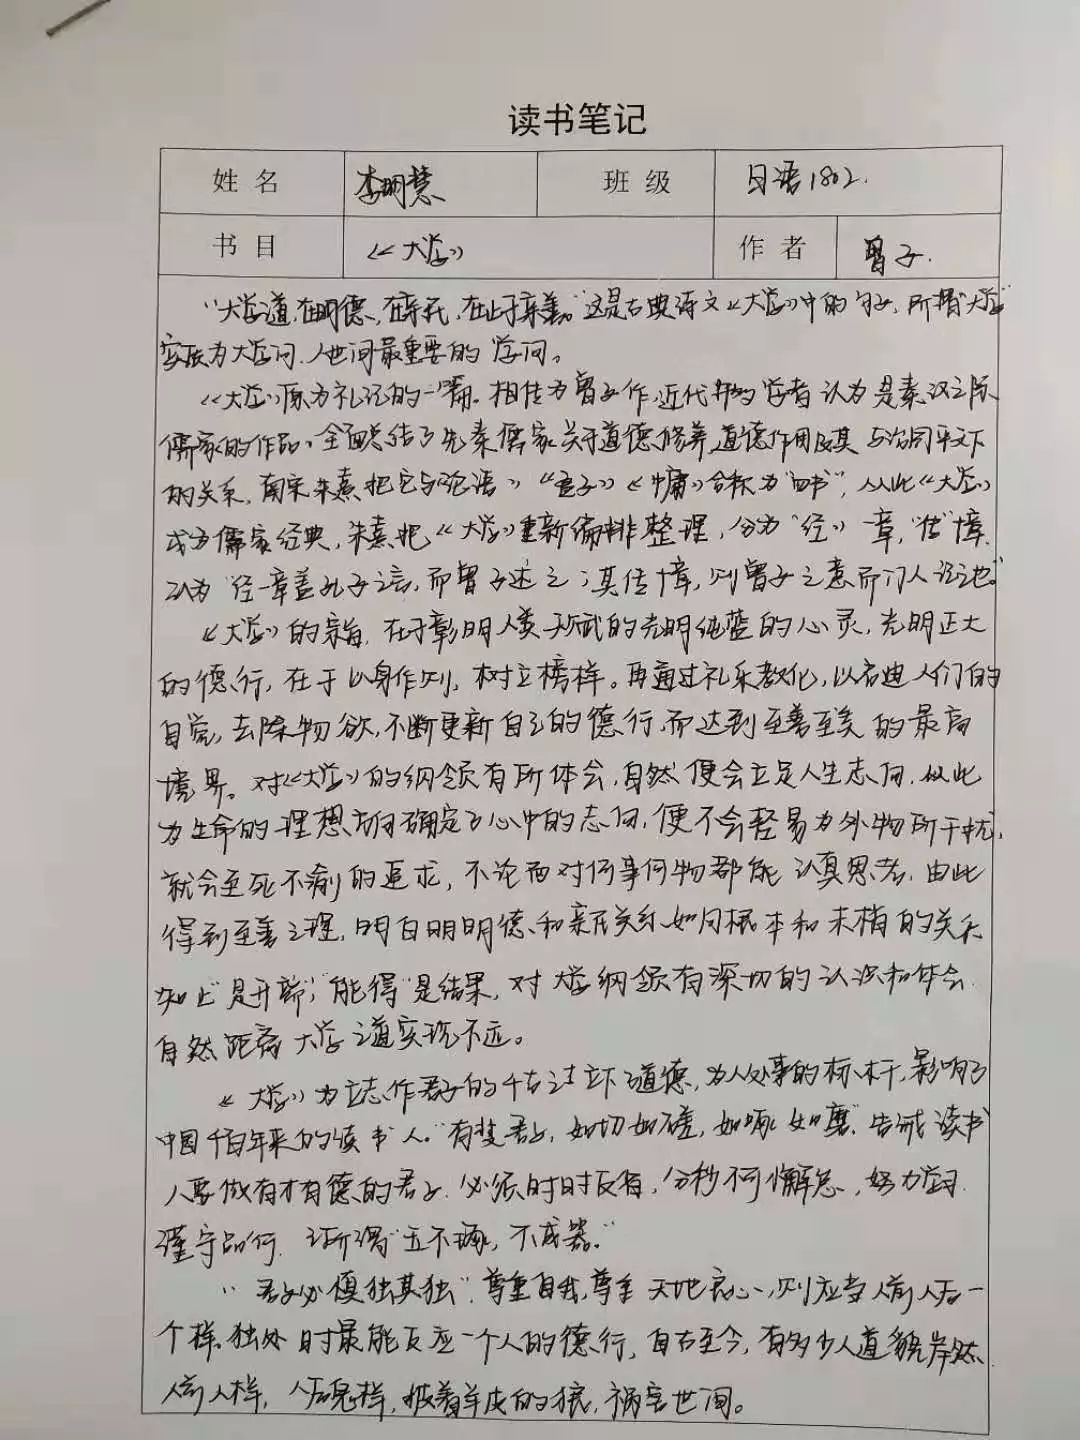 读书笔记
姓名 李明慧 班级 日语1802.
书目 《大学》 作者 曾子.
"大学之道,在明明德,在亲民,在止于至善。"这是古典诗文《大学》中的句子,所谓"大学"
实质为大学问.人世间最重要的学问。
《大学》原为礼记的一篇。相传为曾子作,近代许多学者认为是秦汉之际
儒家的作品,全面总结了先秦儒家关于道德修养,道德作用及其与治国平天下
的关系,南宋朱熹把它与《论语》《孟子》《中庸》合称为"四书",从此《大学》
成为儒家经典,朱熹把《大学》重新编排整理,分为"经"一章,"传"十章.
认为"经一章盖孔子之言,而曾子述之;其传十章,则曾子之意而门人记之也。"
《大学》的宗旨,在于彰明人类 的光明纯蓝的心灵,光明正大
的德行,在于以身作则,树立榜样。再通过礼乐教化,以启迪人们的
自觉,去除物欲,不断更新自己的德行,而达到至善至美的最高
境界。对《大学》的纲领有所体会,自然便会立定人生志向,从此
为生命的理想方向确定了心中的志向,便不会轻易为外物所干扰,
就会至死不渝的追求,不论面对何事何物都能认真思考,由此
得到至善之理,明白明明德和亲民关系如同根本和末梢的关系
"知止"是开端,"能得"是结果,对大学纲领有深切的认识和体会.
自然距离大学之道实现不远。
《大学》为立志作君子的千古 立下了道德,为人处事的标杆,影响了
中国千百年来的读书人。"有斐君子,如切如磋,如琢如磨."告诫读书
人要做有才有德的君子.必须时时反省,分秒不可懈怠,努力学习.
谨守品行.正所谓"玉不琢,不成器。"
"君子必慎独其独",尊重自我,尊重天地良心,则应当人前人后一
个样.独处时最能反应一个人的德行,自古至今,有多少人道貌岸然.
人前人样,人后鬼样,披着羊皮的狼,祸害世间。